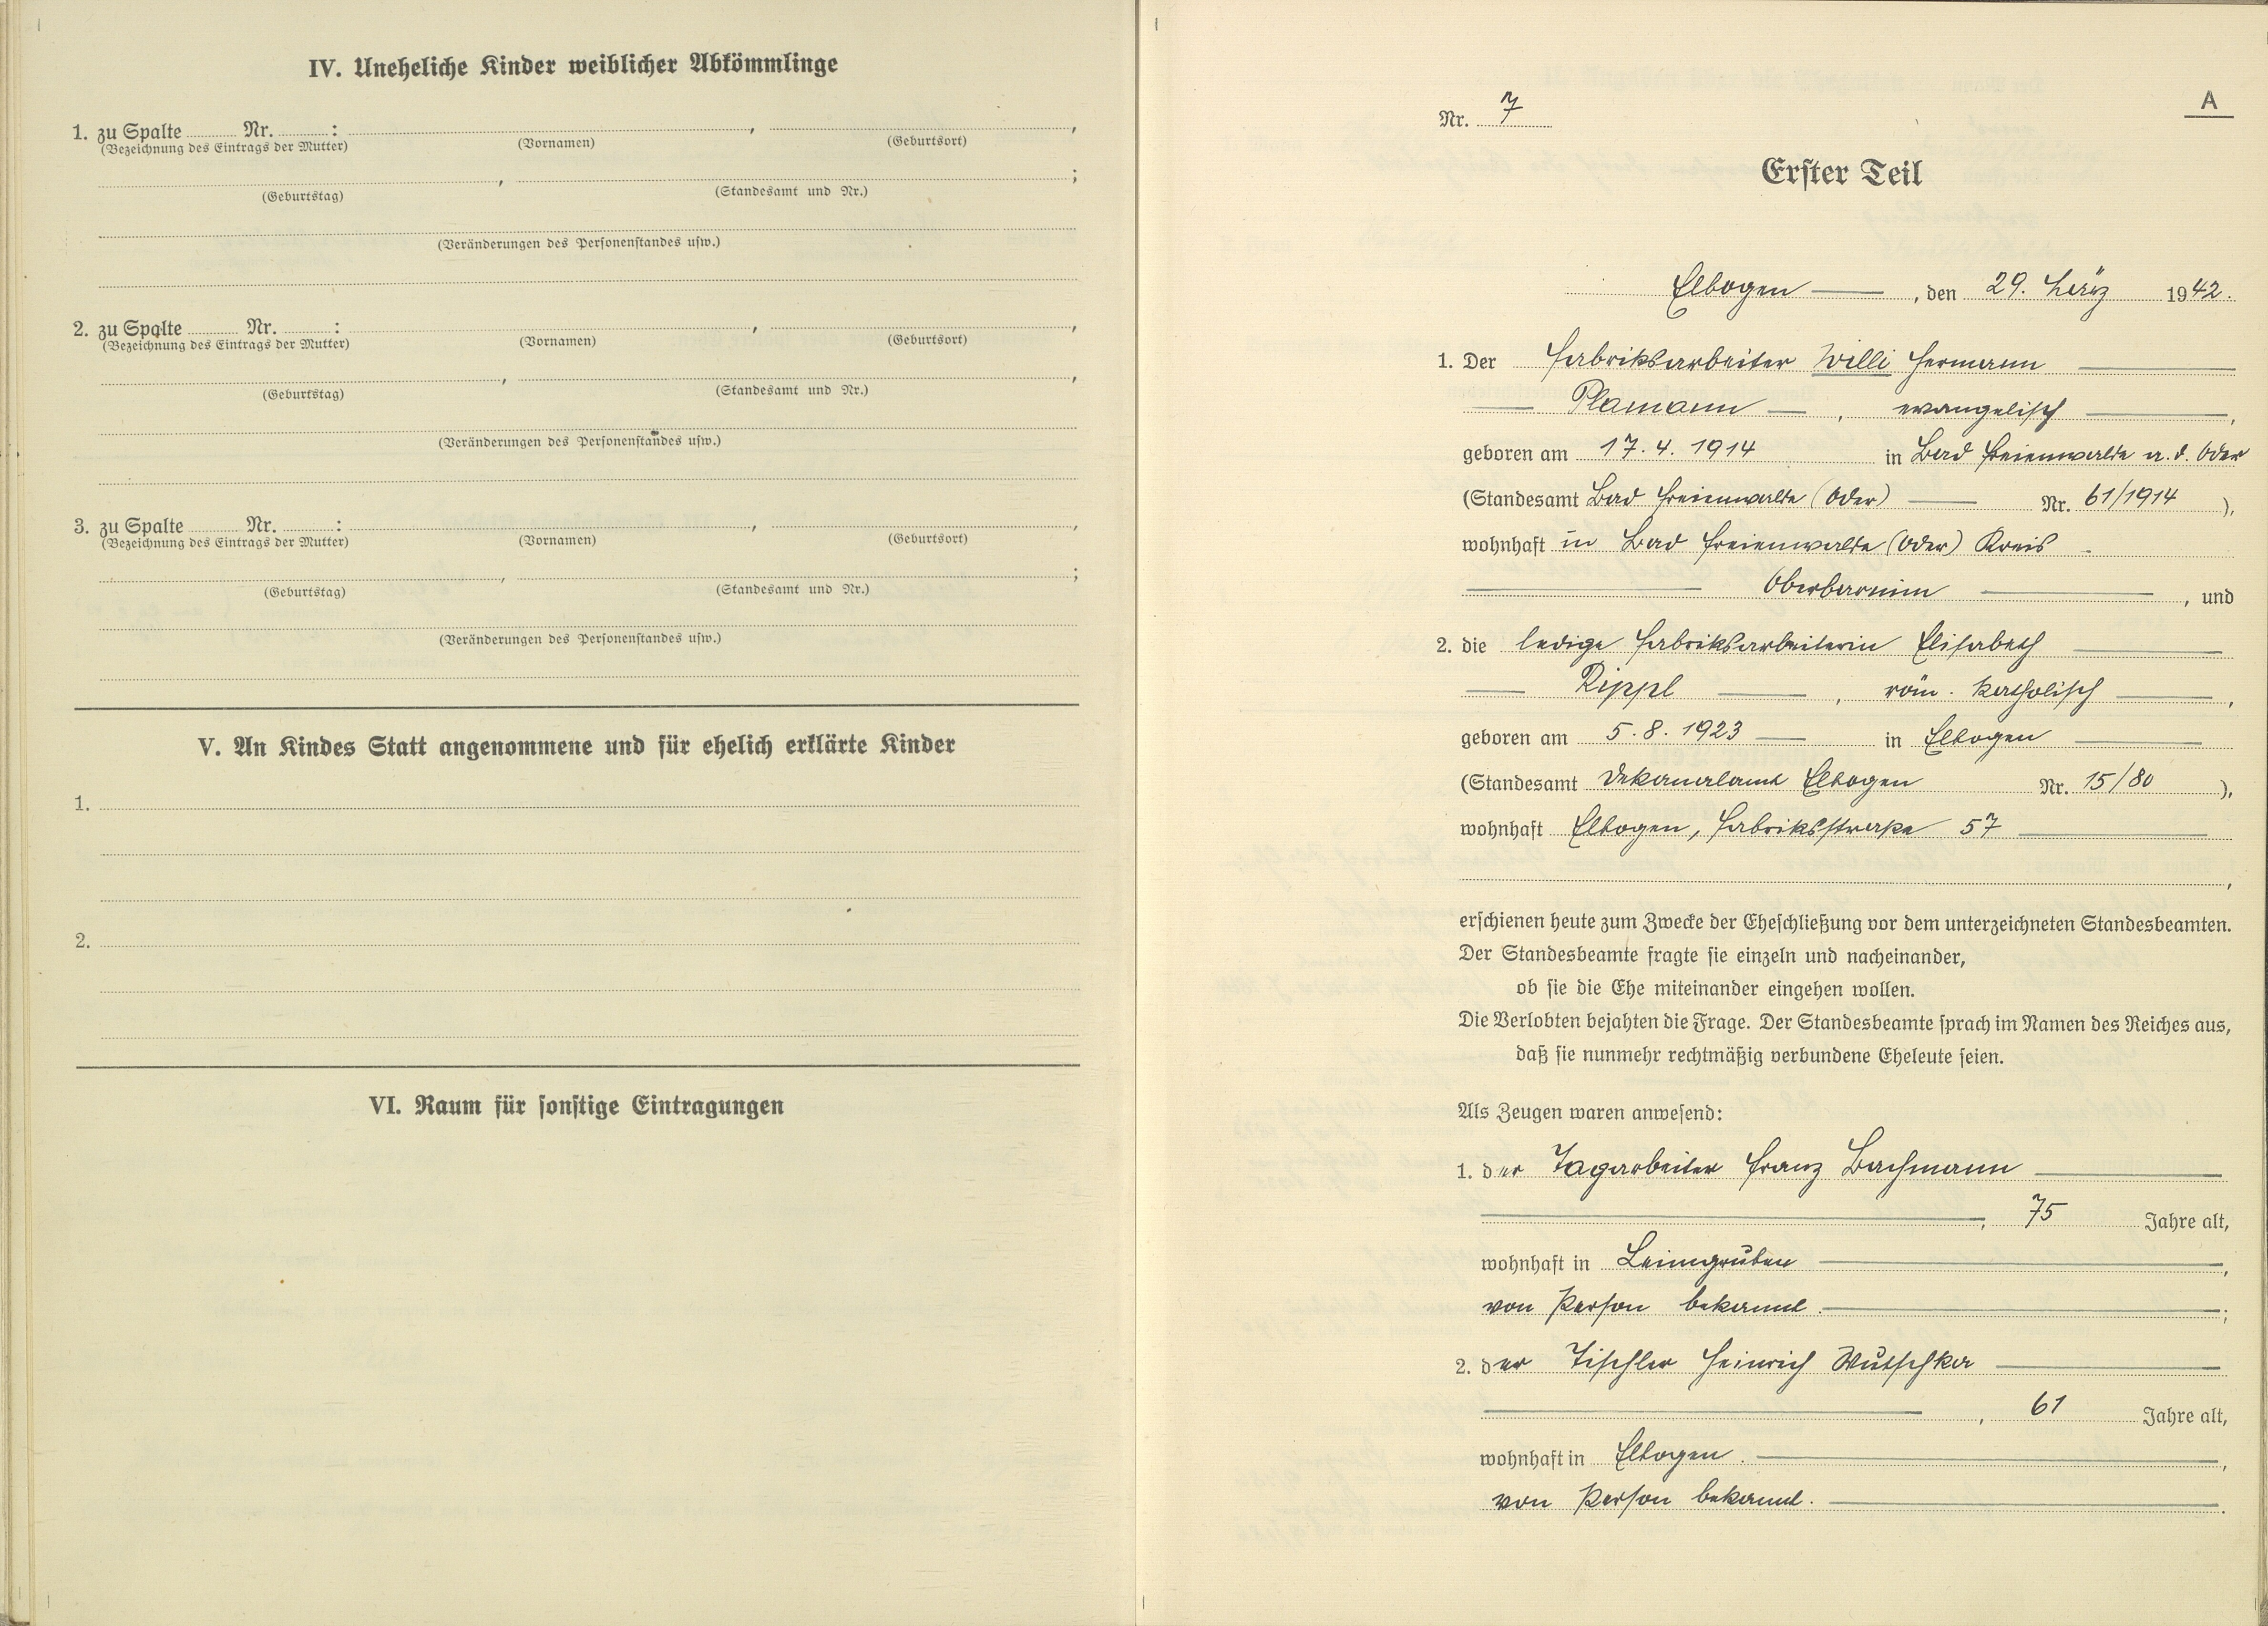 IV. Uneheliche Kinder weiblicher Abkömmlinge
1. zu Spalte Nr. : , ,
(Bezeichnung des Eintrags der Mutter) (Vornamen) (Geburtsort)
, ;
(Geburtstag) (Standesamt und Nr.)
(Veränderungen des Personenstandes usw.)
2. zu Spalte Nr. : , ,
(Bezeichnung des Eintrags der Mutter) (Vornamen) (Geburtsort)
, ,
(Geburtstag) (Standesamt und Nr.)
(Veränderungen des Personenstandes usw.)
3. zu Spalte Nr. : , ,
(Bezeichnung des Eintrags der Mutter) (Vornamen) (Geburtsort)
, ;
(Geburtstag) (Standesamt und Nr.)
(Veränderungen des Personenstandes usw.)
V. An Kindes Statt angenommene und für ehelich erklärte Kinder
1.
2.
VI. Raum für sonstige Eintragungen
A
Nr. 7
Erster Teil
Elbogen, den 29. März 1942.
1. Der Fabriksarbeiter Willi Hermann
Plamann, evangelisch,
geboren am 17.4.1914 in Bad Freienwalde a.d. Oder
(Standesamt Bad Freienwalde (Oder) Nr. 61/1914),
wohnhaft in Bad Freienwalde (Oder) Kreis
Oberbarnim, und
2. die ledige Fabriksarbeiterin Elisabeth
Rippl, röm. katholisch,
geboren am 5.8.1923 in Elbogen
(Standesamt Dekanalamt Elbogen Nr. 15/80),
wohnhaft Elbogen, Fabriksstraße 57
,
erschienen heute zum Zwecke der Eheschließung vor dem unterzeichneten Standesbeamten.
Der Standesbeamte fragte sie einzeln und nacheinander,
ob sie die Ehe miteinander eingehen wollen.
Die Verlobten bejahten die Frage. Der Standesbeamte sprach im Namen des Reiches aus,
daß sie nunmehr rechtmäßig verbundene Eheleute seien.
Als Zeugen waren anwesend:
1. der Tagarbeiter Franz Bachmann
, 75 Jahre alt,
wohnhaft in Leimgruben,
von Person bekannt.;
2. der Tischler Heinrich Wutschka
, 61 Jahre alt,
wohnhaft in Elbogen.,
von Person bekannt..